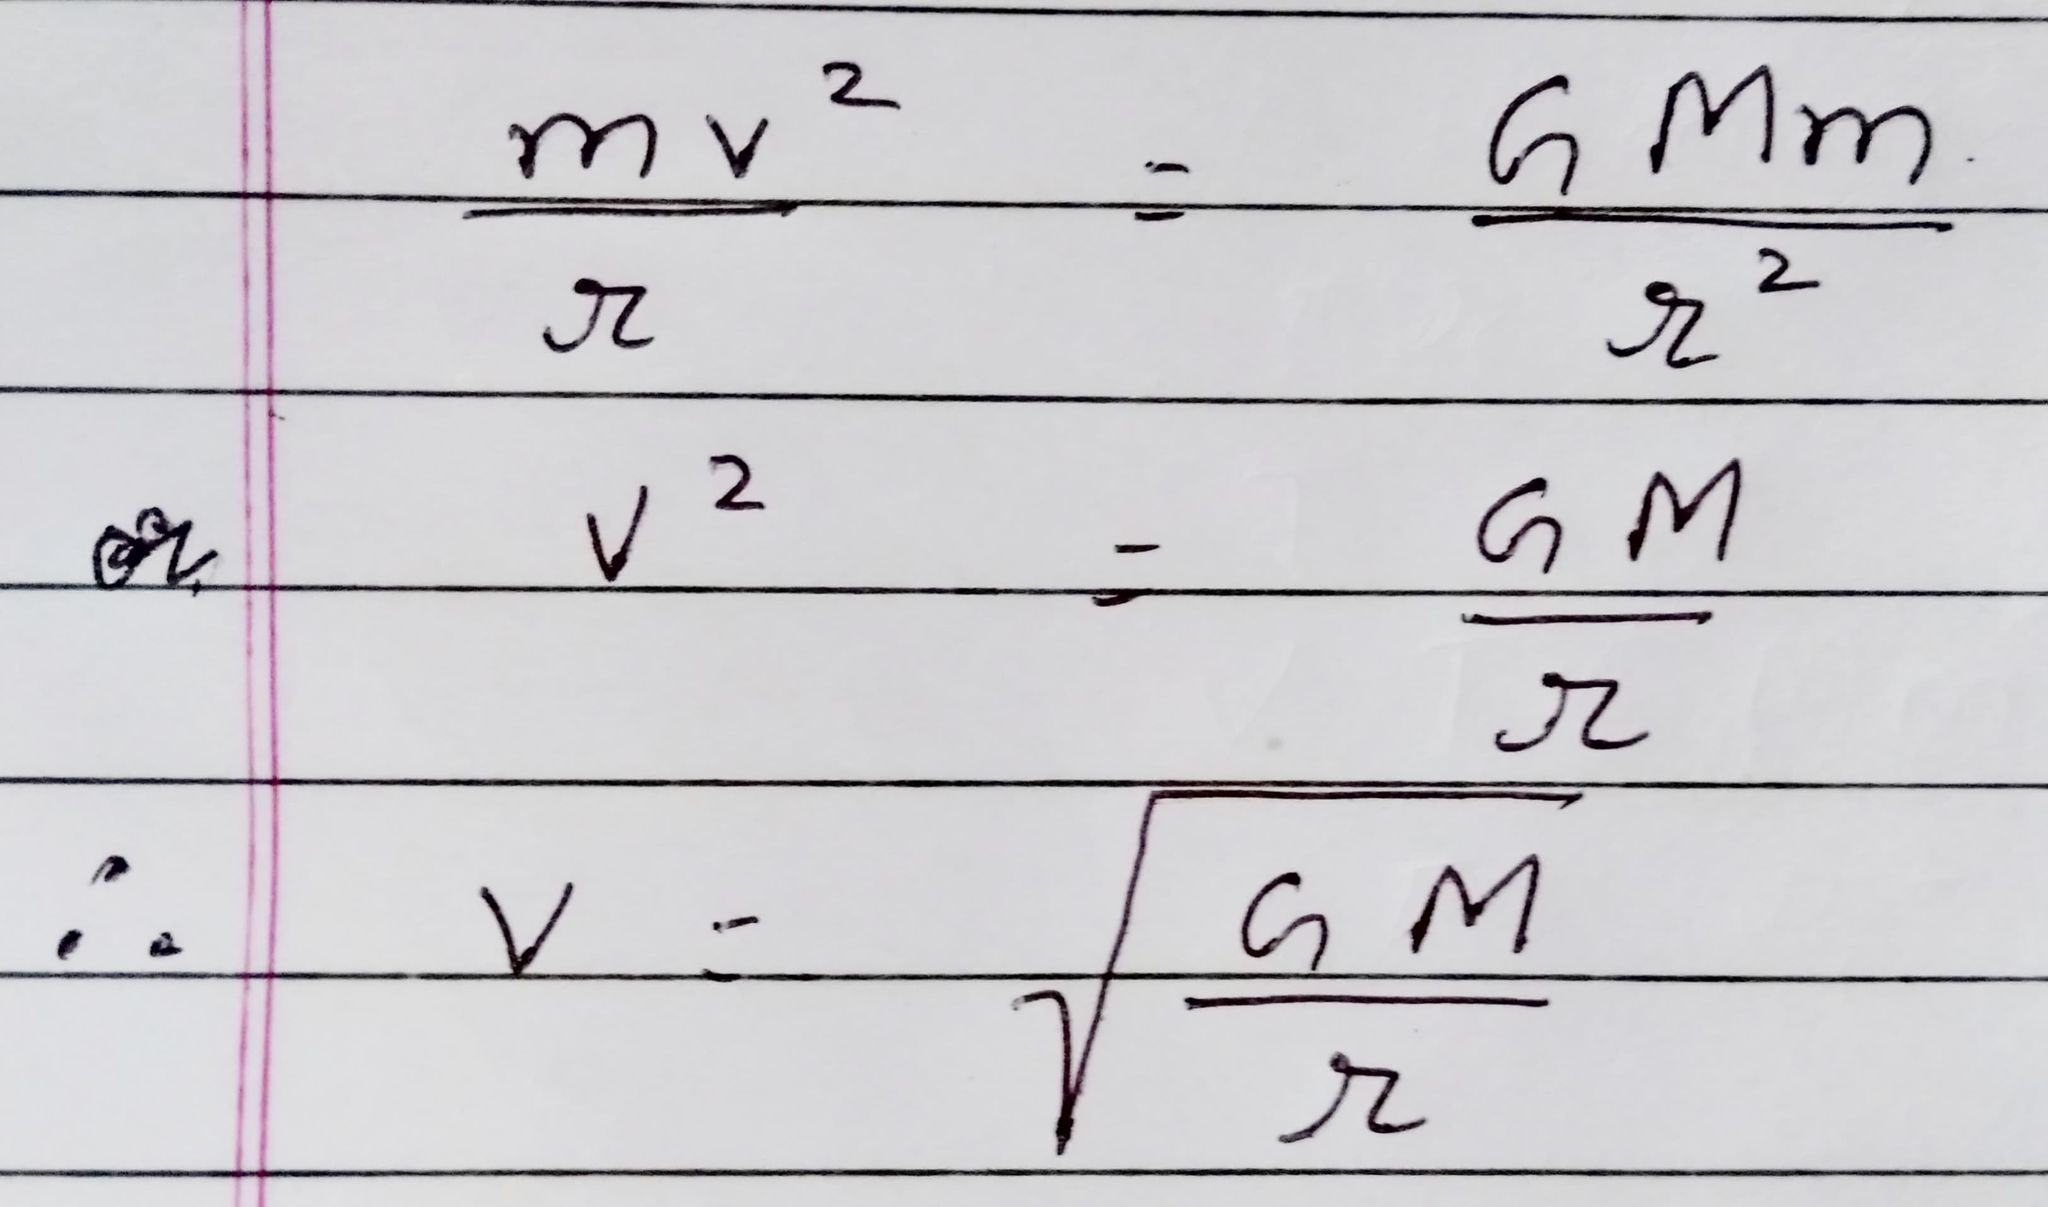 mv²/r = GMm/r²
or v² = GM/r
∴ v = √(GM/r)